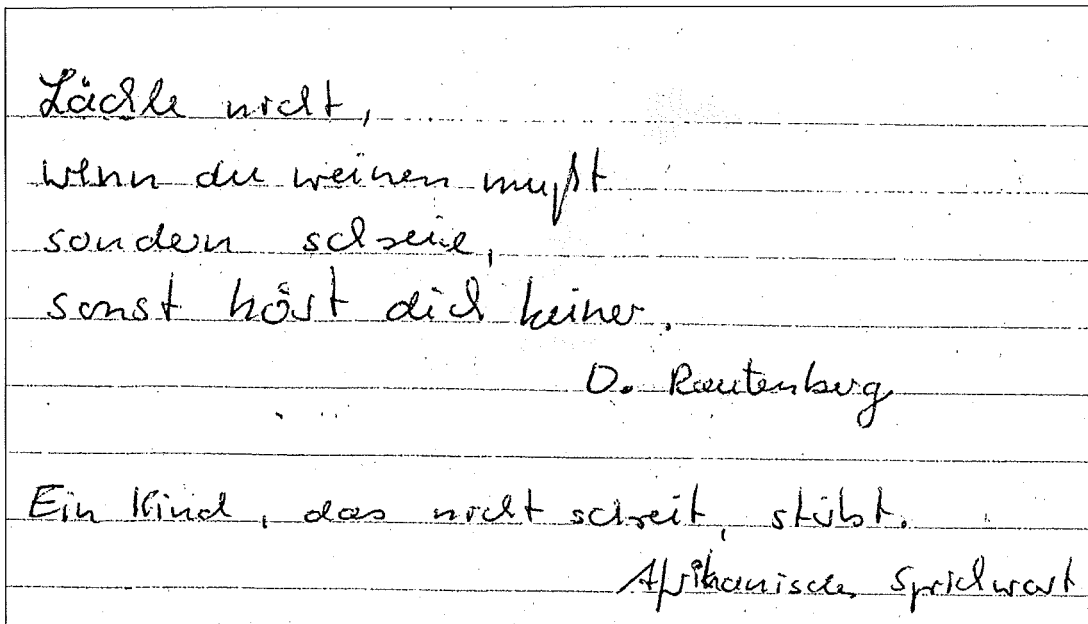 Lächle nicht,
wenn du weinen mußt
sondern schreie,
sonst hört dich keiner.
D. Rautenberg
Ein Kind, das nicht schreit, stirbt.
Afrikanisches Sprichwort